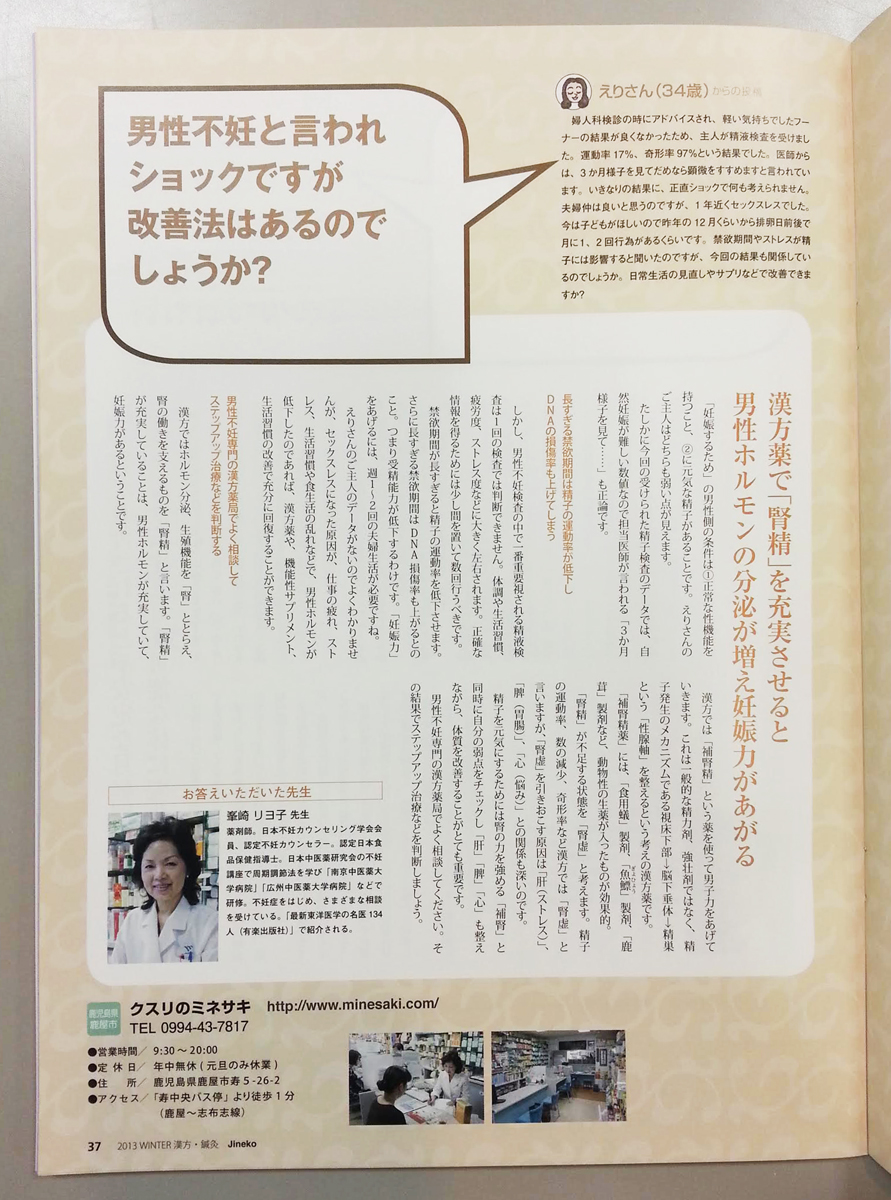 男性不妊と言われ
ショックですが
改善法はあるので
しょうか?
えりさん(34歳)からの投稿
婦人科検診の時にアドバイスされ、軽い気持ちでしたフー
ナーの結果が良くなかったため、主人が精液検査を受けまし
た。運動率17%、奇形率97%という結果でした。医師から
は、3か月様子を見てだめなら顕微をすすめますと言われてい
ます。いきなりの結果に、正直ショックで何も考えられません。
夫婦仲は良いと思うのですが、1年近くセックスレスでした。
今は子どもがほしいので昨年の12月くらいから排卵日前後で
月に1、2回行為があるくらいです。禁欲期間やストレスが精
子には影響すると聞いたのですが、今回の結果も関係してい
るのでしょうか。日常生活の見直しやサプリなどで改善できま
すか?
漢方薬で「腎精」を充実させると
男性ホルモンの分泌が増え妊娠力があがる
「妊娠するため」の男性側の条件は①正常な性機能を
持つこと、②に元気な精子があることです。えりさんの
ご主人はどちらも弱い点が見えます。
たしかに今回の受けられた精子検査のデータでは、自
然妊娠が難しい数値なので担当医師が言われる「3か月
様子を見て……」も正論です。
長すぎる禁欲期間は精子の運動率が低下し
DNAの損傷率も上げてしまう
しかし、男性不妊検査の中で一番重要視される精液検
査は1回の検査では判断できません。体調や生活習慣、
疲労度、ストレス度などに大きく左右されます。正確な
情報を得るためには少し間を置いて数回行うべきです。
禁欲期間が長すぎると精子の運動率を低下させます。
さらに長すぎる禁欲期間はDNA損傷率も上がるとの
こと。つまり受精能力が低下するわけです。「妊娠力」
をあげるには、週1〜2回の夫婦生活が必要ですね。
えりさんのご主人のデータがないのでよくわかりませ
んが、セックスレスになった原因が、仕事の疲れ、スト
レス、生活習慣や食生活の乱れなどで、男性ホルモンが
低下したのであれば、漢方薬や、機能性サプリメント、
生活習慣の改善で充分に回復することができます。
男性不妊専門の漢方薬局でよく相談して
ステップアップ治療などを判断する
漢方ではホルモン分泌、生殖機能を「腎」ととらえ、
腎の働きを支えるものを「腎精」と言います。「腎精」
が充実していることは、男性ホルモンが充実していて、
妊娠力があるということです。
漢方では「補腎精」という薬を使って男子力をあげて
いきます。これは一般的な精力剤、強壮剤ではなく、精
子発生のメカニズムである視床下部→脳下垂体→精巣
という「性腺軸」を整えるという考えの漢方薬です。
「補腎精薬」には、「食用蟻」製剤、「魚鰾」製剤、「鹿
茸」製剤など、動物性の生薬が入ったものが効果的。
「腎精」が不足する状態を「腎虚」と考えます。精子
の運動率、数の減少、奇形率など漢方では「腎虚」と
言いますが、「腎虚」を引きおこす原因は「肝(ストレス)」、
「脾(胃腸)」、「心(悩み)」との関係も深いのです。
精子を元気にするためには腎の力を強める「補腎」と
同時に自分の弱点をチェックし「肝」「脾」「心」も整え
ながら、体質を改善することがとても重要です。
男性不妊専門の漢方薬局でよく相談してください。そ
の結果でステップアップ治療などを判断しましょう。
お答えいただいた先生
峯崎 リヨ子 先生
薬剤師。日本不妊カウンセリング学会会
員、認定不妊カウンセラー。認定日本食
品保健指導士。日本中医薬研究会の不妊
講座で周期調節法を学び「南京中医薬大
学病院」「広州中医薬大学病院」などで
研修。不妊症をはじめ、さまざまな相談
を受けている。「最新東洋医学の名医134
人(有楽出版社)」で紹介される。
鹿児島県
鹿屋市
クスリのミネサキ http://www.minesaki.com/
TEL 0994-43-7817
●営業時間/ 9:30〜20:00
●定休日/ 年中無休(元旦のみ休業)
●住所/ 鹿児島県鹿屋市寿5-26-2
●アクセス/「寿中央バス停」より徒歩1分
(鹿屋〜志布志線)
37 2013 WINTER 漢方・鍼灸 Jineko